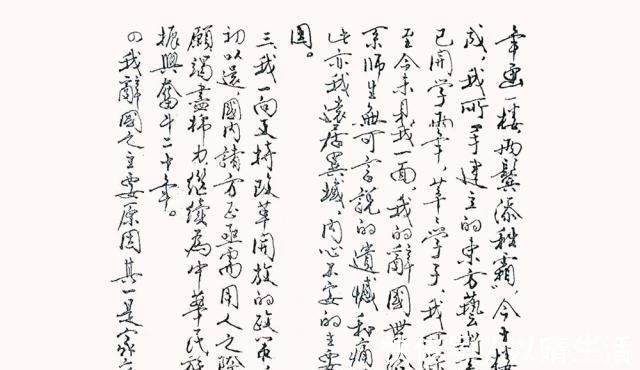 年画一楼，两鬓添秋霜”，今十楼
成，我所一手建立的东方藝術
已開学兩年，莘莘学子，我
至今未見我一面，我的辭國
系師生無可言說的遺憾和痛
此亦我遠居異域，内心不安的主要
因。
三、我一向支持改革開放的政
初以還，國内諸方正亟需用人之際
願竭盡棉力，繼續為中華民族
振興奮斗二十年。
我辭國之主要原因其一是家
以晴生活